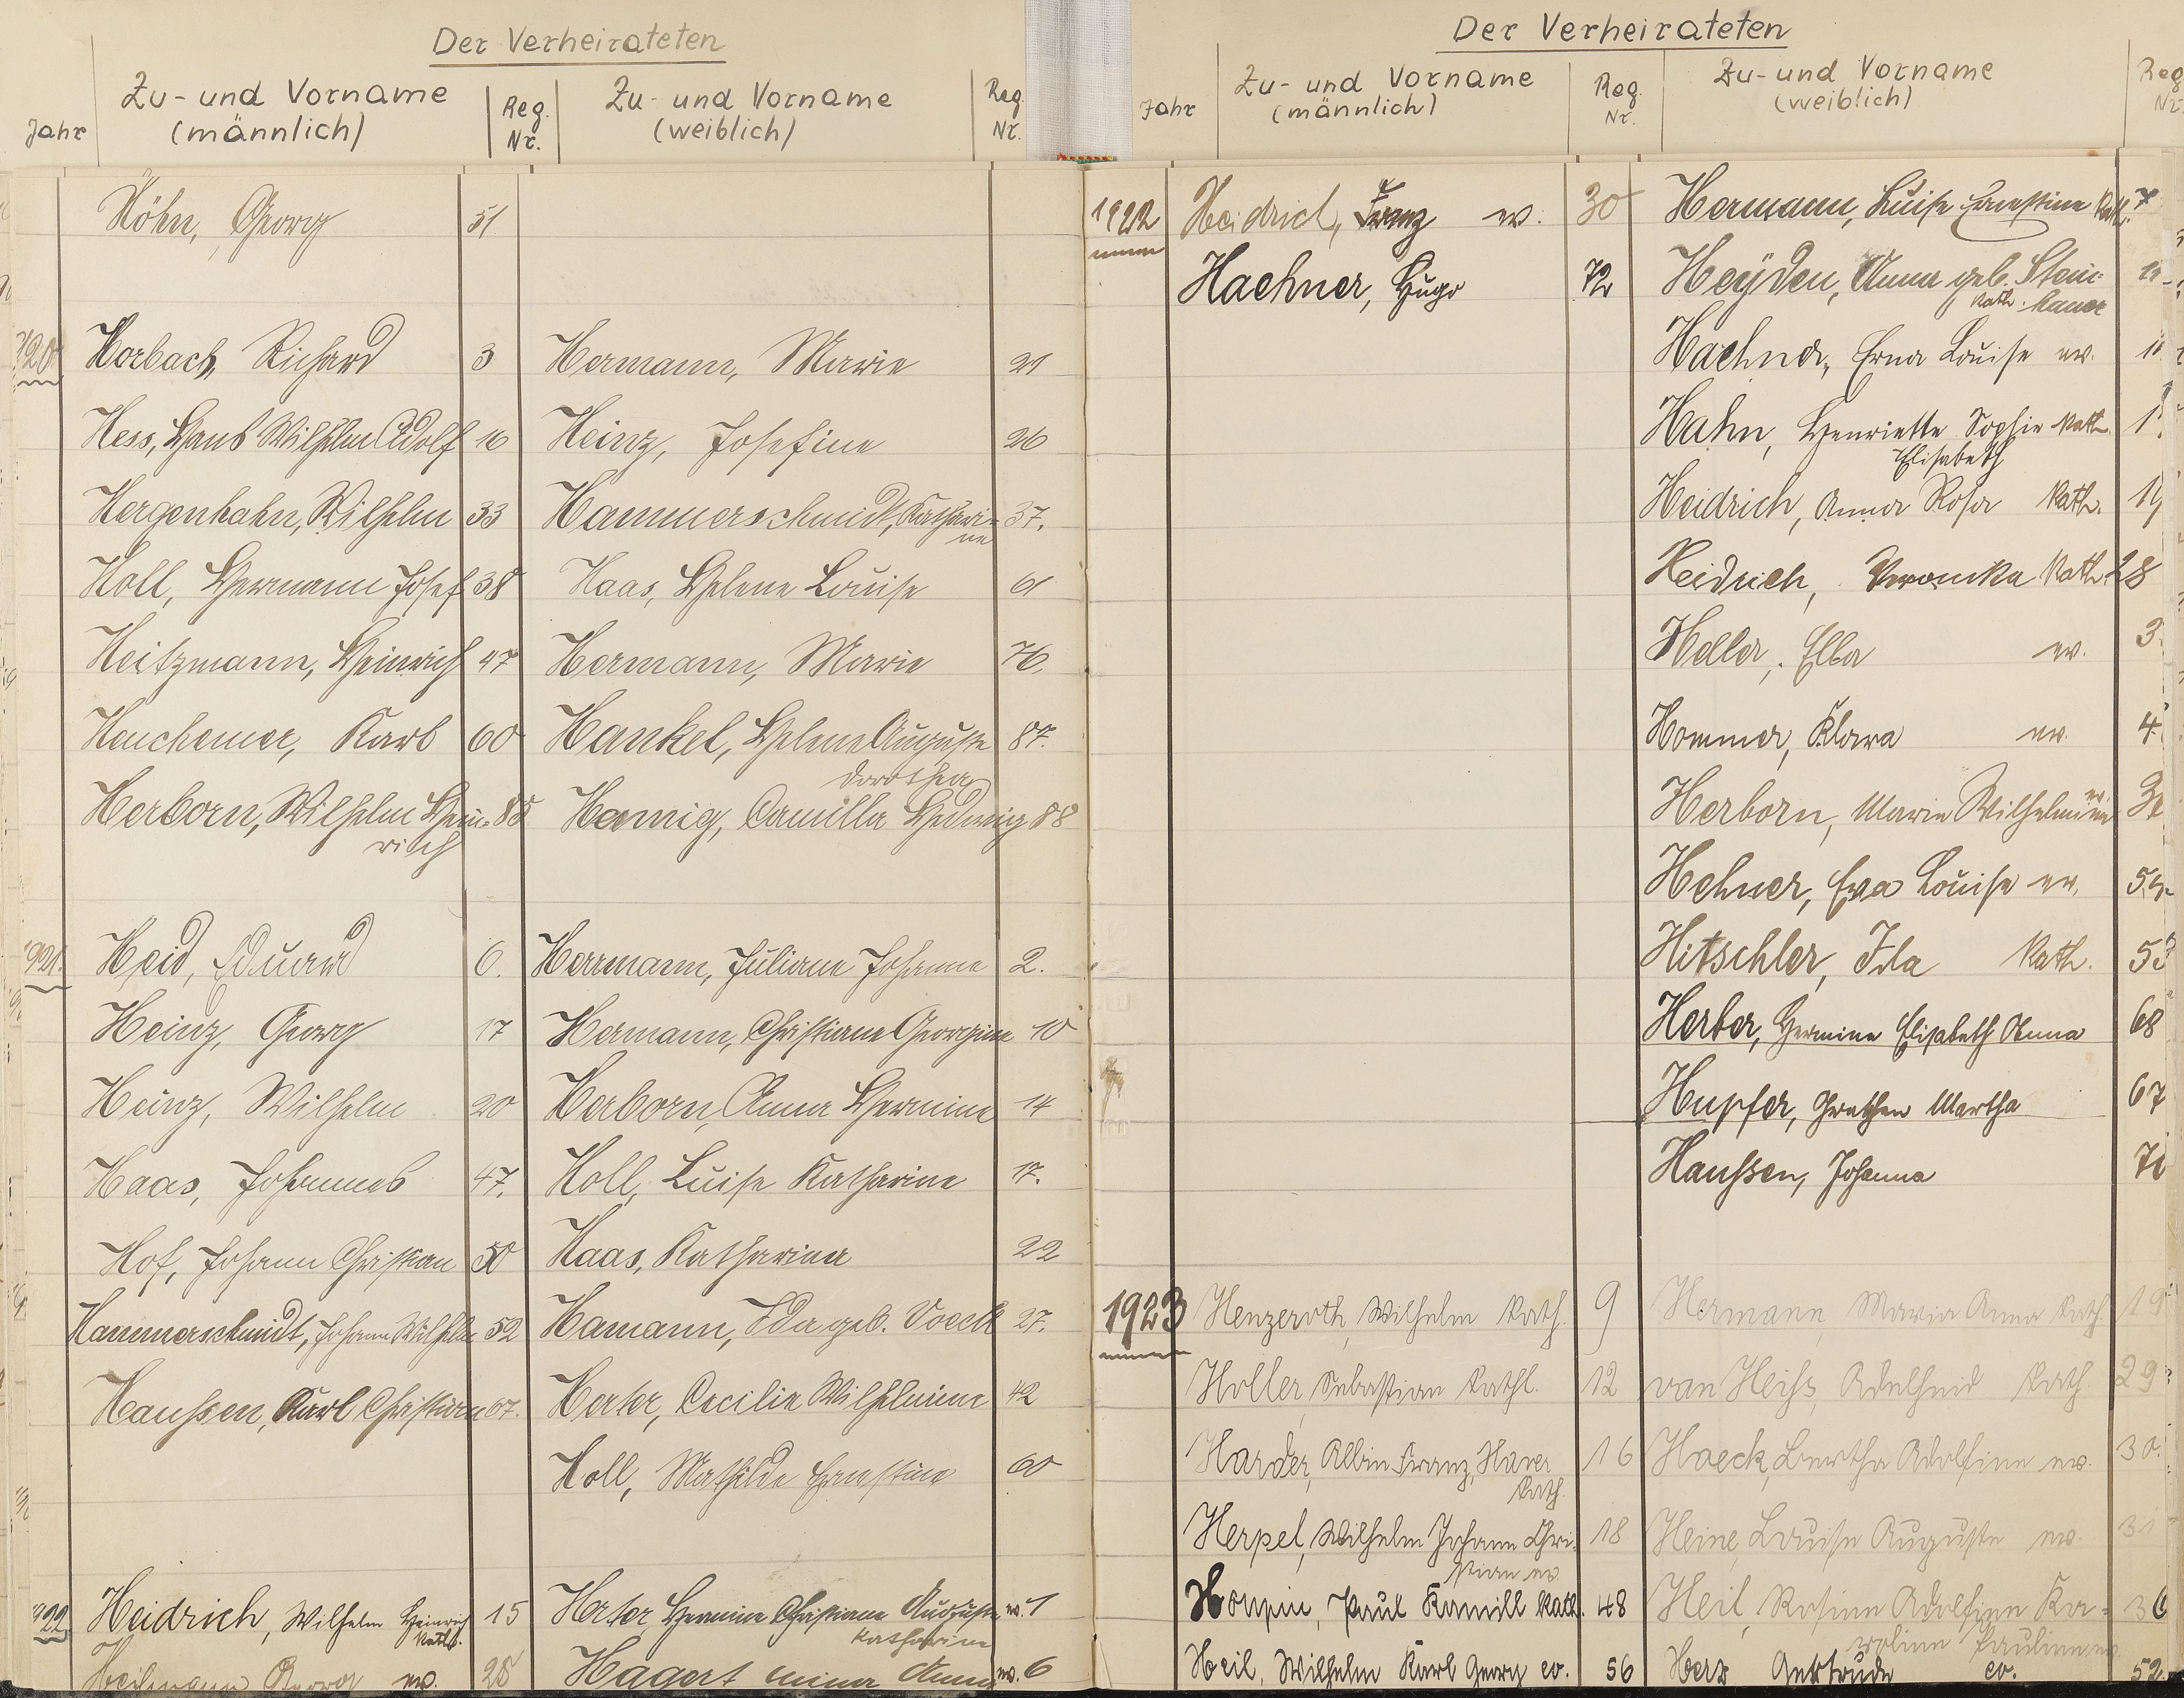 Der Verheirateten
Jahr Zu- und Vorname (männlich) Reg. Nr. Zu- und Vorname (weiblich) Reg. Nr.
Höhn, Georg 51
Horbach, Richard 3 Hermann, Marie 21
Hess, Hans Wilhelm Adolf 16 Heinz, Josefine 26
Hergenhahn, Wilhelm 33 Hammerschmidt, Kathari-
ne 37.
Holl, Hermann Josef 38 Haas, Helene Louise 61
Heitzmann, Heinrich 47 Hermann, Marie 76.
Karl 60 Hankel, Helene Auguste 87.
Dorothea
Herborn, Wilhelm Hein- 85 Camilla Hedwig 88
rich
1921. Heid, Eduard 6. Herrmann, Juliane Johanna 2.
Heinz, Georg 17 Hermann, Christiane Georgine 10
Heinz, Wilhelm 20 Herborn, Anna Hermine 14
Haas, Johannes 47. Holl, Luise Katharine 17.
Hof, Johann Christian 50 Haas, Katharina 22
Hammerschmidt, Johann Wilhelm 52 Hamann, Ida geb. Voeck 27.
Haussen, Karl Christian 67. Herter, Cecilie Wilhelmine 42
Holl, Mathilde Ernestine 60
922 Heidrich, Wilhelm Heinrich 15 Herter, Hermine Christiane Auguste ev. 1
kath. Katharine
Heilmann Georg ev. 25 Hagert Anna ev. 6
Der Verheirateten
Jahr Zu- und Vorname (männlich) Reg. Nr. Zu- und Vorname (weiblich) Reg. Nr.
1922 Heidrich, Franz ev. 30 Hermann, Luise Ernestine kath. 7
Haehner, Hugo 72 Heyden, Anna geb. Stein-
kath. hauer
Haehner, Erna Louise ev.
Hahn, Henriette Sophie kath.
Elisabeth
Heidrich, Anna Rosa kath. 19
Heidrich, Veronika kath. 28
Heller, Ella ev. 3
Hommer, Klara ev. 4
Herborn, Marie Wilhelmine ev.
Hehner, Eva Louise ev.
Hitschler, Ida kath. 53
Herber, Hermine Elisabeth Anna 68
Hupfer, Gretchen Martha 67
Haussen, Johanna
1923 Henzeroth, Wilhelm kath. 9 Hermann, Maria Anna kath. 19
Holler, Sebastian kathl. 12 van Heiss, Adelheid kath. 29
Harder, Albin Franz Xaver 16 Haeck, Bertha Adolfine ev. 30.
kath.
Herpel, Wilhelm Johann Chri- 18 Heine, Louise Auguste ev. 31
stian ev.
Paul Kamill kath. 48 Heil, Rosine Adolfine Ka- 36
roline Pauline ev.
Heil, Wilhelm Karl Georg ev. 56 Herz Gertrude ev. 52